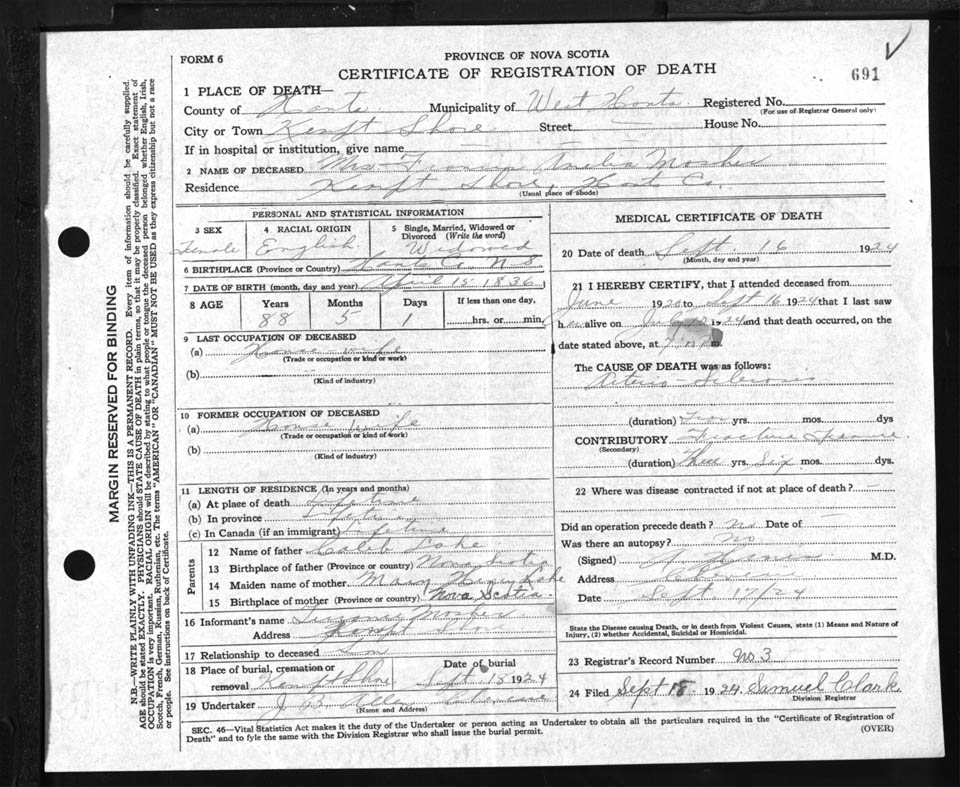 FORM 6
PROVINCE OF NOVA SCOTIA
CERTIFICATE OF REGISTRATION OF DEATH
691
1 PLACE OF DEATH—
County of Hants. Municipality of West Hants Registered No.
(For use of Registrar General only)
City or Town Kempt Shore Street House No.
If in hospital or institution, give name
2 NAME OF DECEASED Mrs Amelia Mosher
Residence Kempt Shore, Hants Co.
(Usual place of abode)
PERSONAL AND STATISTICAL INFORMATION
3 SEX Female
4 RACIAL ORIGIN English
5 Single, Married, Widowed or Divorced (Write the word) Widowed
6 BIRTHPLACE (Province or Country) Hants Co. N.S.
7 DATE OF BIRTH (month, day and year) April 15 1836
8 AGE Years Months Days If less than one day,
88 5 1 hrs. or min.
9 LAST OCCUPATION OF DECEASED
(a) House wife
(Trade or occupation or kind or work)
(b)
(Kind of industry)
10 FORMER OCCUPATION OF DECEASED
(a) House wife
(Trade or occupation or kind of work)
(b)
(Kind of industry)
11 LENGTH OF RESIDENCE (In years and months)
(a) At place of death Lifetime
(b) In province Lifetime
(c) In Canada (if an immigrant) Lifetime
Parents
12 Name of father Caleb Lake
13 Birthplace of father (Province or country) Nova Scotia
14 Maiden name of mother Mary Lake
15 Birthplace of mother (Province or country) Nova Scotia
16 Informant's name Mosher
Address Kempt Shore
17 Relationship to deceased Son
18 Place of burial, cremation or removal Kempt Shore Date of burial Sept 18 1924
19 Undertaker J
(Name and Address)
MEDICAL CERTIFICATE OF DEATH
20 Date of death Sept. 16 1924
(Month, day and year)
21 I HEREBY CERTIFY, that I attended deceased from
June 1920 to Sept 16 1924 that I last saw
her alive on 1924 and that death occurred, on the
date stated above, at m.
The CAUSE OF DEATH was as follows:
Arterio-Sclerosis
(duration) yrs. mos. dys
CONTRIBUTORY Fracture
(Secondary)
(duration) Three yrs. Six mos. dys.
22 Where was disease contracted if not at place of death? —
Did an operation precede death? No Date of —
Was there an autopsy? No
(Signed) M.D.
Address
Date Sept. 17/24
State the Disease causing Death, or in death from Violent Causes, state (1) Means and Nature of Injury, (2) whether Accidental, Suicidal or Homicidal.
23 Registrar's Record Number No 3
24 Filed Sept 18 1924 Samuel Clark
Division Registrar
SEC. 46—Vital Statistics Act makes it the duty of the Undertaker or person acting as Undertaker to obtain all the particulars required in the "Certificate of Registration of
Death" and to fyle the same with the Division Registrar who shall issue the burial permit.
(OVER)
MARGIN RESERVED FOR BINDING
N.B.—WRITE PLAINLY WITH UNFADING INK—THIS IS A PERMANENT RECORD. Every item of information should be carefully supplied.
AGE should be stated EXACTLY. PHYSICIANS should STATE CAUSE OF DEATH in plain terms, so that it may be properly classified. Exact statement of
OCCUPATION is very important. RACIAL ORIGIN will be described by stating to what people or tongue the deceased person belonged whether English, Irish,
Scotch, French, German, Russian, Ruthenian, etc. The terms "AMERICAN" OR "CANADIAN" MUST NOT BE USED as they express citizenship but not a race
or people. See instructions on back of Certificate.